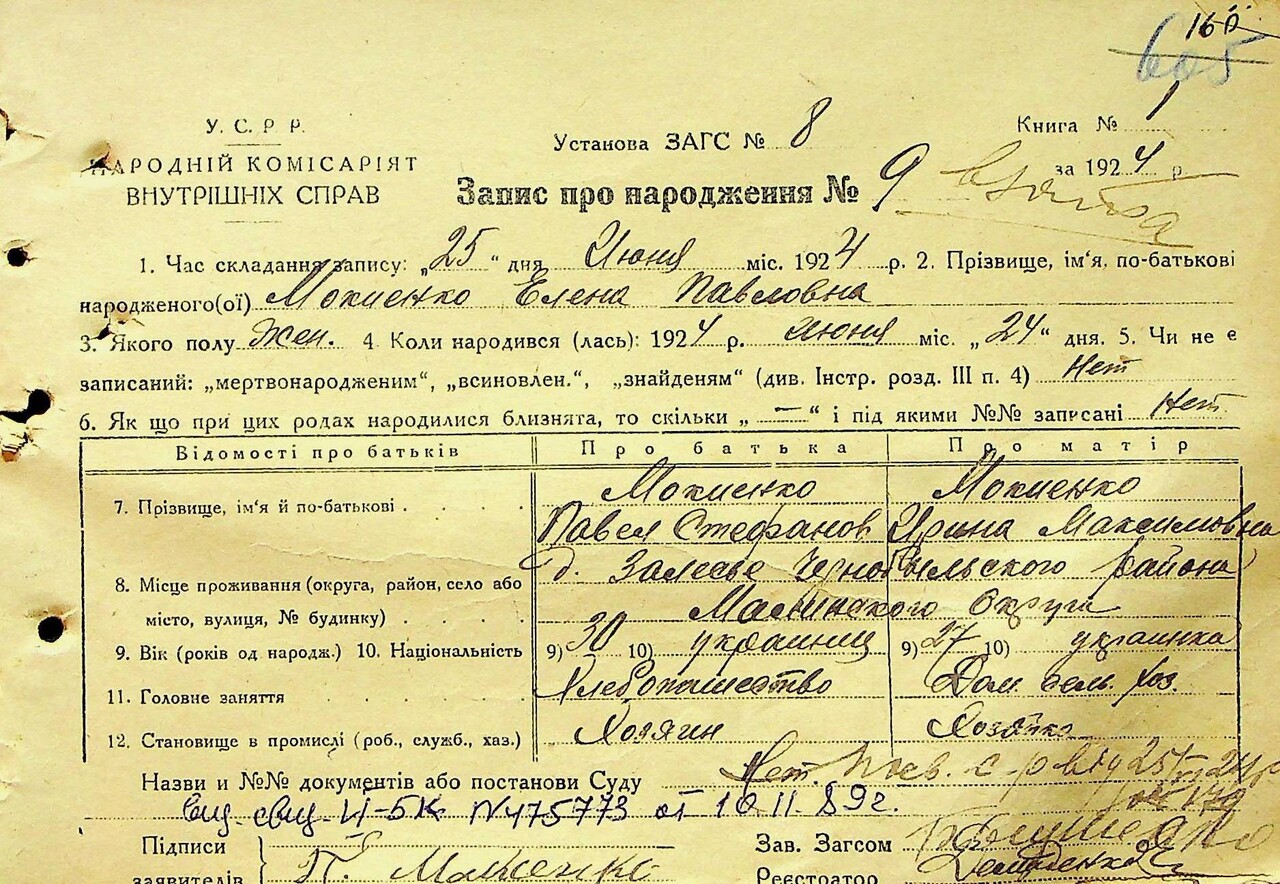 160
605
У. С. Р. Р.
НАРОДНІЙ КОМІСАРІЯТ
ВНУТРІШНІХ СПРАВ
Установа ЗАГС № 8
Книга № 1
за 1924 р.
Запис про народження № 9
1. Час складання запису: „25“ дня Июня міс. 1924 р. 2. Прізвище, ім'я, по-батькові
народженого(ої) Мокиенко Елена Павловна
3. Якого полу Жен. 4. Коли народився (лась): 1924 р. Июня міс. „24“ дня. 5. Чи не є
записаний: „мертвонародженим“, „всиновлен.“, „знайденям“ (див. Інстр. розд. III п. 4) Нет
6. Як що при цих родах народилися близнята, то скільки „—“ і під якими №№ записані Нет
Відомості про батьків Про батька Про матір
7. Прізвище, ім'я й по-батькові Мокиенко Мокиенко
Павел Стефанов Ирина Максимовна
8. Місце проживання (округа, район, село або д. Залесье Чернобыльского района
місто, вулиця, № будинку) Малинского Округи
9. Вік (років од народж.) 10. Національність 9) 30 10) украинец 9) 27 10) украинка
11. Головне заняття Хлебопашество Дом. сель. хоз.
12. Становище в промислі (роб., служб., хаз.) Хозяин Хозяйка
Назви и №№ документів або постанови Суду Нет.
выд. свид. II-БК №475773 от 10.11.89г.
Підписи
заявителів П. Мокиенко
Зав. Загсом
Реєстратор